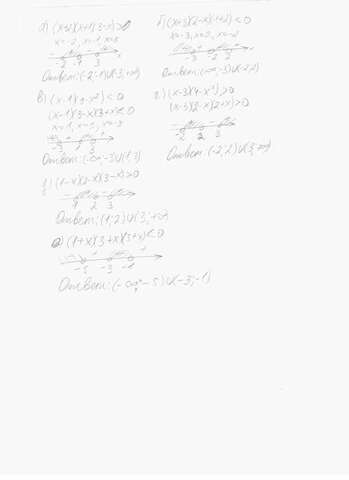 а) (x+2)(x+1)(3-x)>0
x=-2, x=-1, x=3
-2 -1 3 x
Ответ: (-2;-1)∪(3;+∞)
б) (x+3)(2-x)(x+2)<0
x=-3, x=2, x=-2
-3 -2 2
Ответ: (-∞;-3)∪(-2;2)
в) (x-1)(9-x²)<0
(x-1)(3-x)(3+x)<0
x=1, x=3, x=-3
-3 1 3
Ответ: (-∞;-3)∪(1;3)
г) (x-3)(4-x²)>0
(x-3)(2-x)(2+x)>0
-2 2 3
Ответ: (-2;2)∪(3;+∞)
(1-x)(2-x)(3-x)>0
1 2 3
Ответ: (1;2)∪(3;+∞)
(1+x)(3+x)(5+x)<0
-5 -3 -1
Ответ: (-∞;-5)∪(-3;-1)